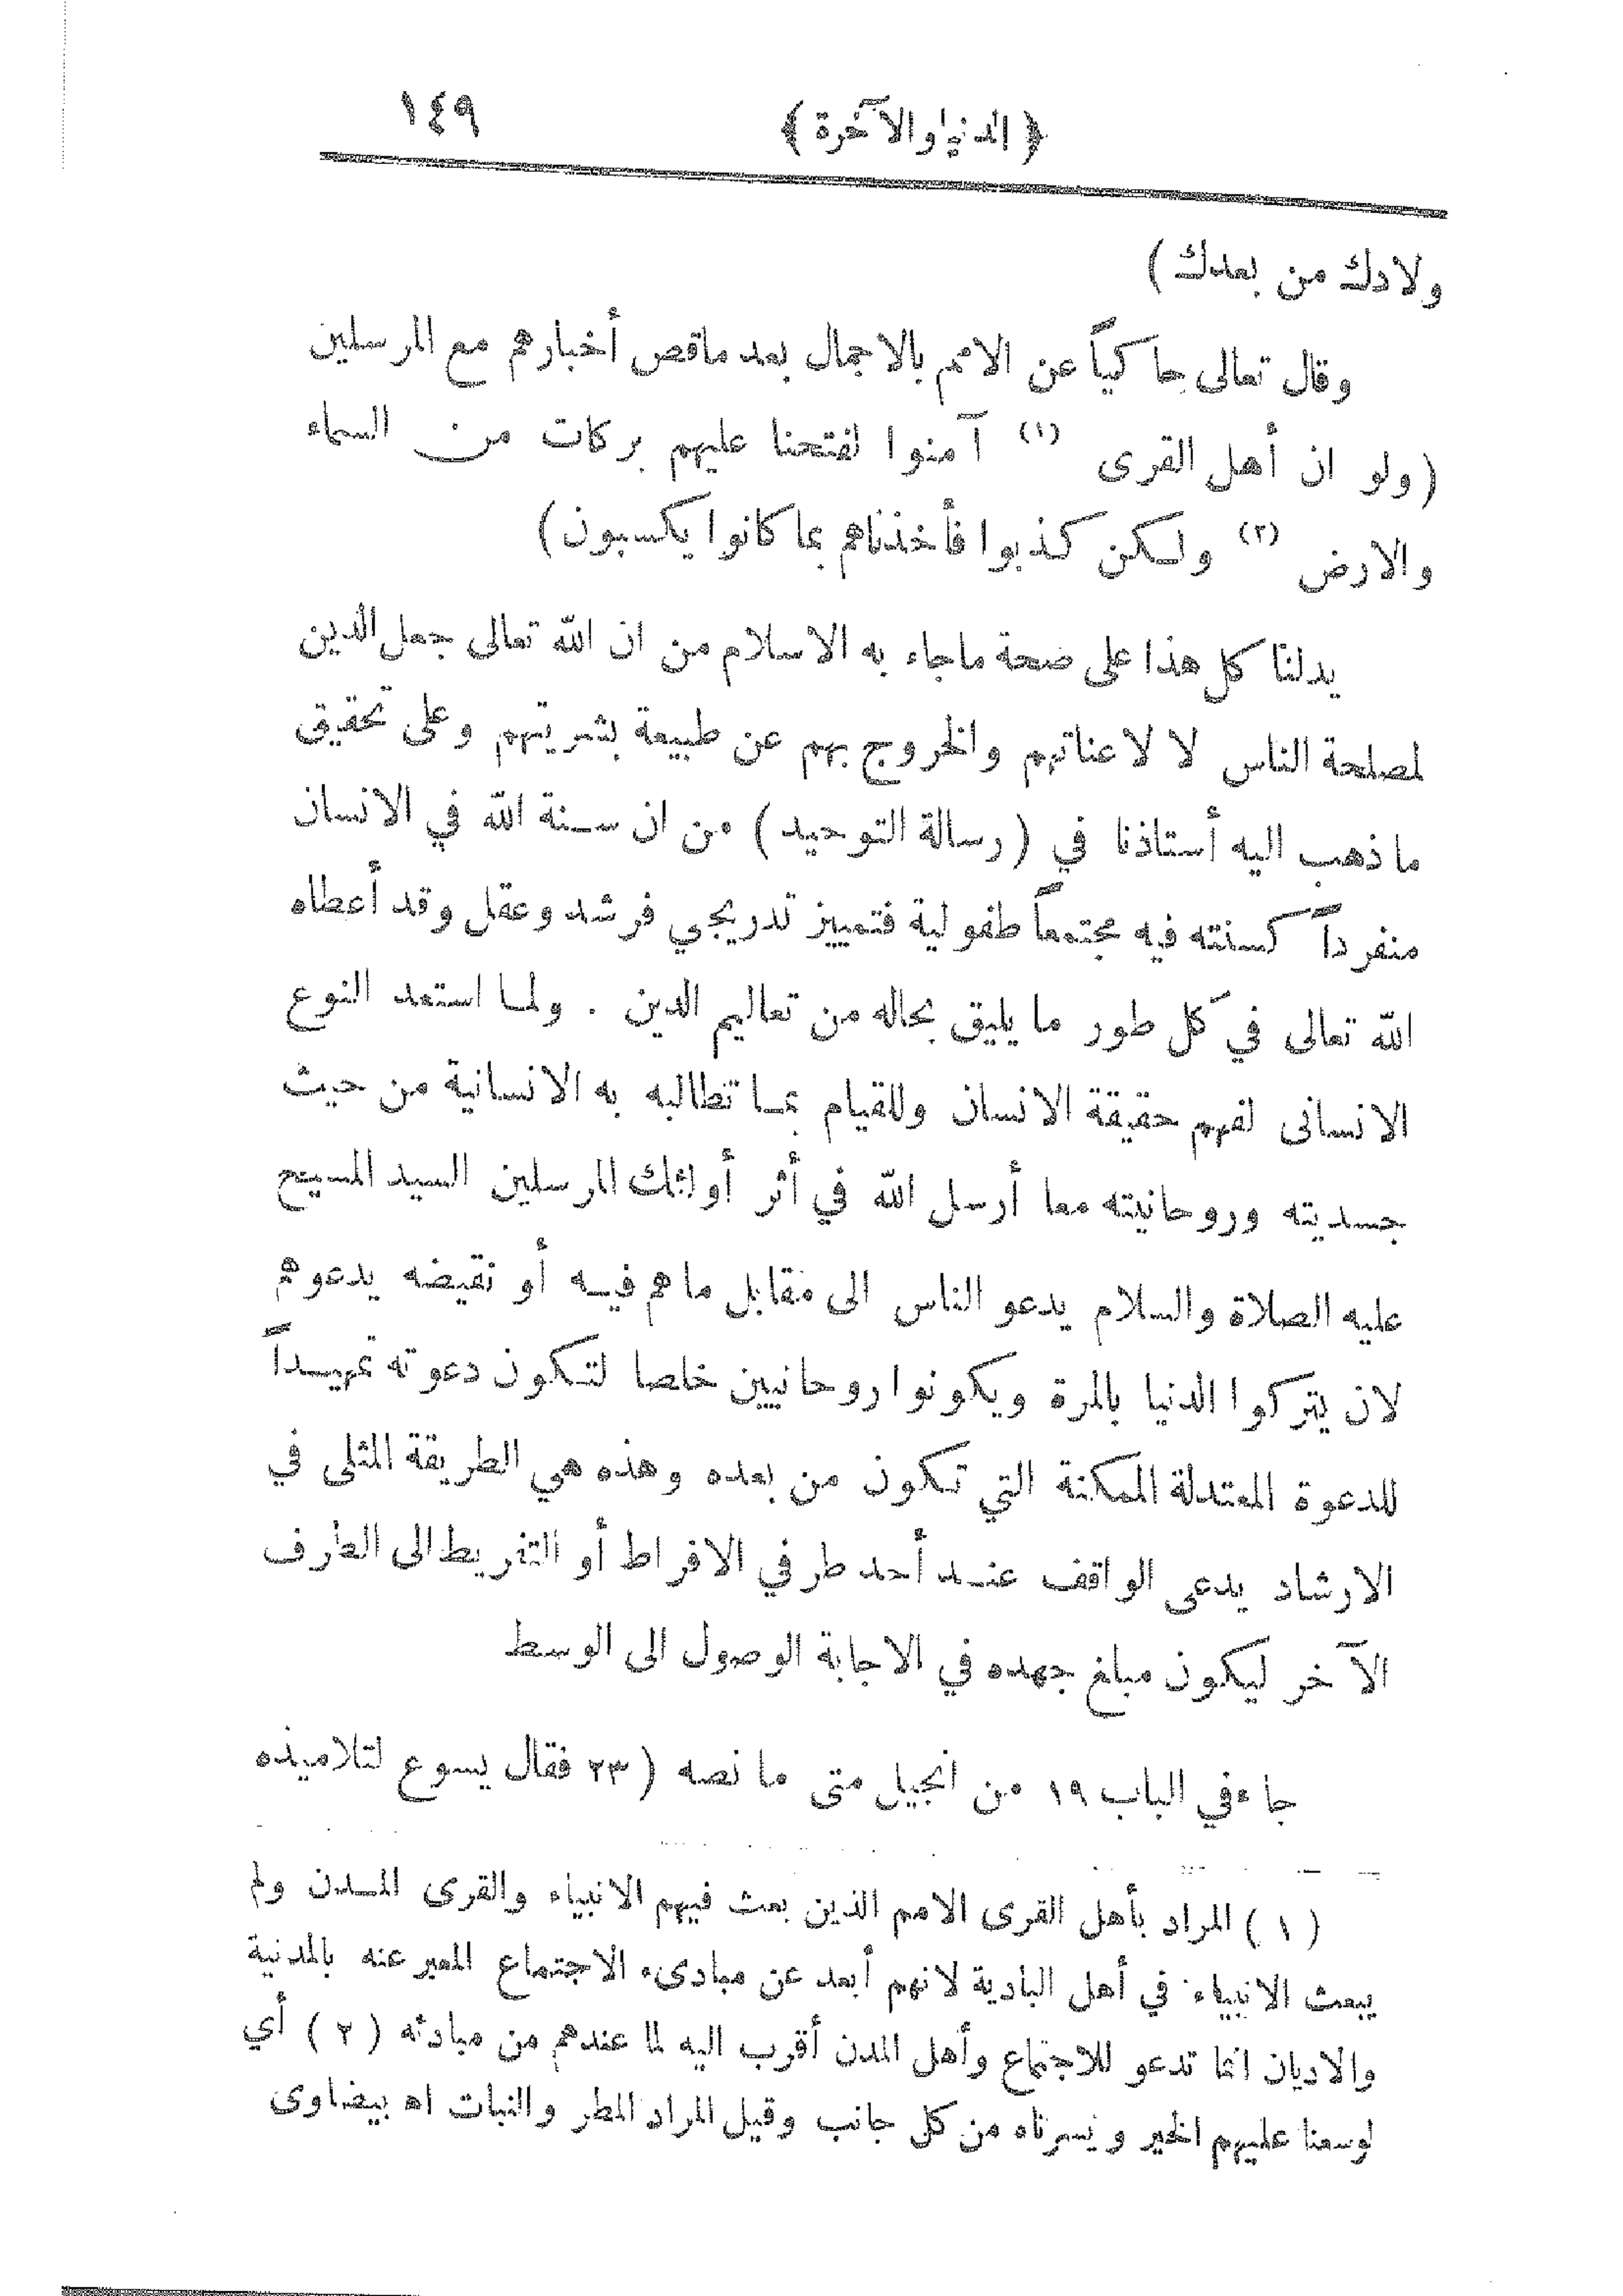 ﴿ الدنيا والآخرة ﴾ ١٤٩
ولادك من بعدك )
وقال تعالى حاكياً عن الامم بالاجمال بعد ماقص أخبارهم مع المرسلين
( ولو ان أهل القرى (١) آمنوا لفتحنا عليهم بركات من السماء
والارض (٢) ولكن كذبوا فأخذناهم بما كانوا يكسبون )
يدلنا كل هذا على صحة ماجاء به الاسلام من ان الله تعالى جعل الدين
لمصلحة الناس لا لاعناتهم والخروج بهم عن طبيعة بشريتهم وعلى تحقيق
ما ذهب اليه أستاذنا في ( رسالة التوحيد ) من ان سنة الله في الانسان
منفرداً كسنته فيه مجتمعاً طفولية فتمييز تدريجي فرشد وعقل وقد أعطاه
الله تعالى في كل طور ما يليق بحاله من تعاليم الدين . ولما استعد النوع
الانسانى لفهم حقيقة الانسان وللقيام بما تطالبه به الانسانية من حيث
جسديته وروحانيته معا أرسل الله في أثر أولئك المرسلين السيد المسيح
عليه الصلاة والسلام يدعو الناس الى مقابل ما هم فيه أو نقيضه يدعوهم
لان يتركوا الدنيا بالمرة ويكونوا روحانيين خلصا لتكون دعوته تمهيداً
للدعوة المعتدلة الممكنة التي تكون من بعده وهذه هي الطريقة المثلى في
الارشاد يدعى الواقف عند أحد طرفي الافراط أو التفريط الى الطرف
الآخر ليكون مبلغ جهده في الاجابة الوصول الى الوسط
جاء في الباب ١٩ من انجيل متى ما نصه ( ٢٣ فقال يسوع لتلاميذه
( ١ ) المراد بأهل القرى الامم الذين بعث فيهم الانبياء والقرى المدن ولم
يبعث الانبياء في أهل البادية لانهم أبعد عن مبادىء الاجتماع المعبر عنه بالمدنية
والاديان انما تدعو للاجتماع وأهل المدن أقرب اليه لما عندهم من مبادئه ( ٢ ) أي
لوسعنا عليهم الخير ويسرناه من كل جانب وقيل المراد المطر والنبات اه بيضاوى